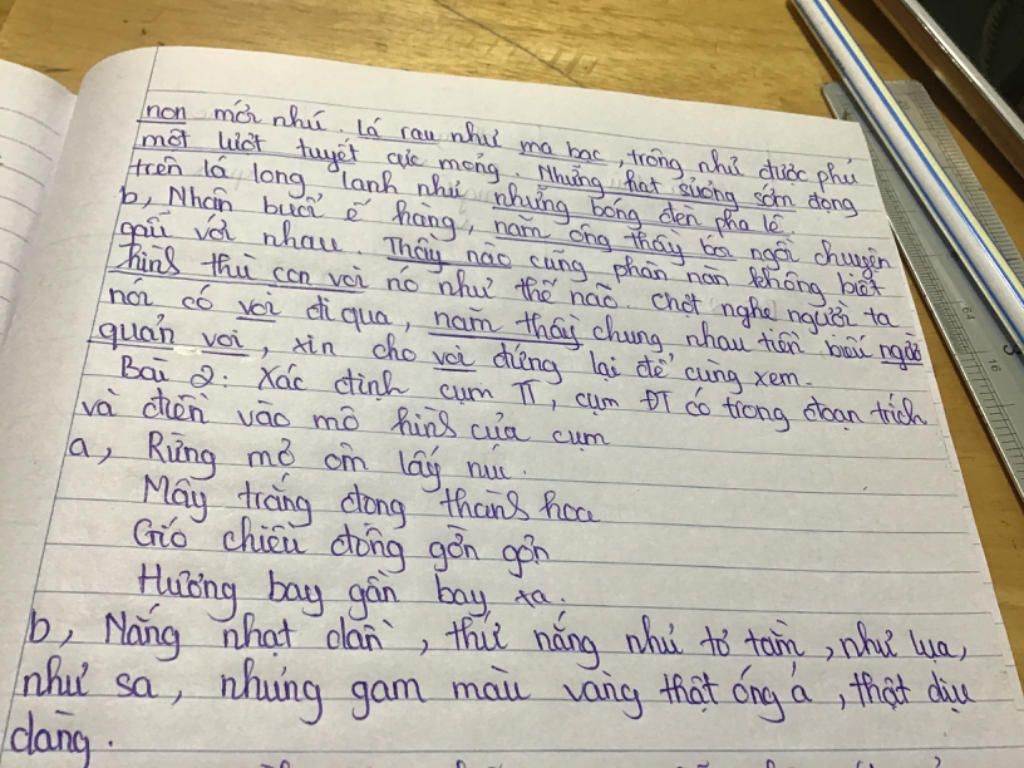 non mới nhú. Lá rau như mạ bạc, trông như được phủ
một lượt tuyết cực mỏng. Những hạt sương sớm đọng
trên lá long lanh như những bóng đèn pha lê.
b, Nhân buổi ế hàng, năm ông thầy bói ngồi chuyện
gẫu với nhau. Thầy nào cũng phàn nàn không biết
hình thù con voi nó như thế nào. Chợt nghe người ta
nói có voi đi qua, năm thầy chung nhau tiền biếu người
quản voi, xin cho voi đứng lại để cùng xem.
Bài 2: Xác định cụm TT, cụm ĐT có trong đoạn trích
và điền vào mô hình của cụm
a, Rừng mơ ôm lấy núi.
Mây trắng đong thành hoa
Gió chiều đông gờn gợn
Hương bay gần bay xa.
b, Nắng nhạt dần, thứ nắng như tơ tằm, như lụa,
như sa, những gam màu vàng thật óng ả, thật dịu
dàng.